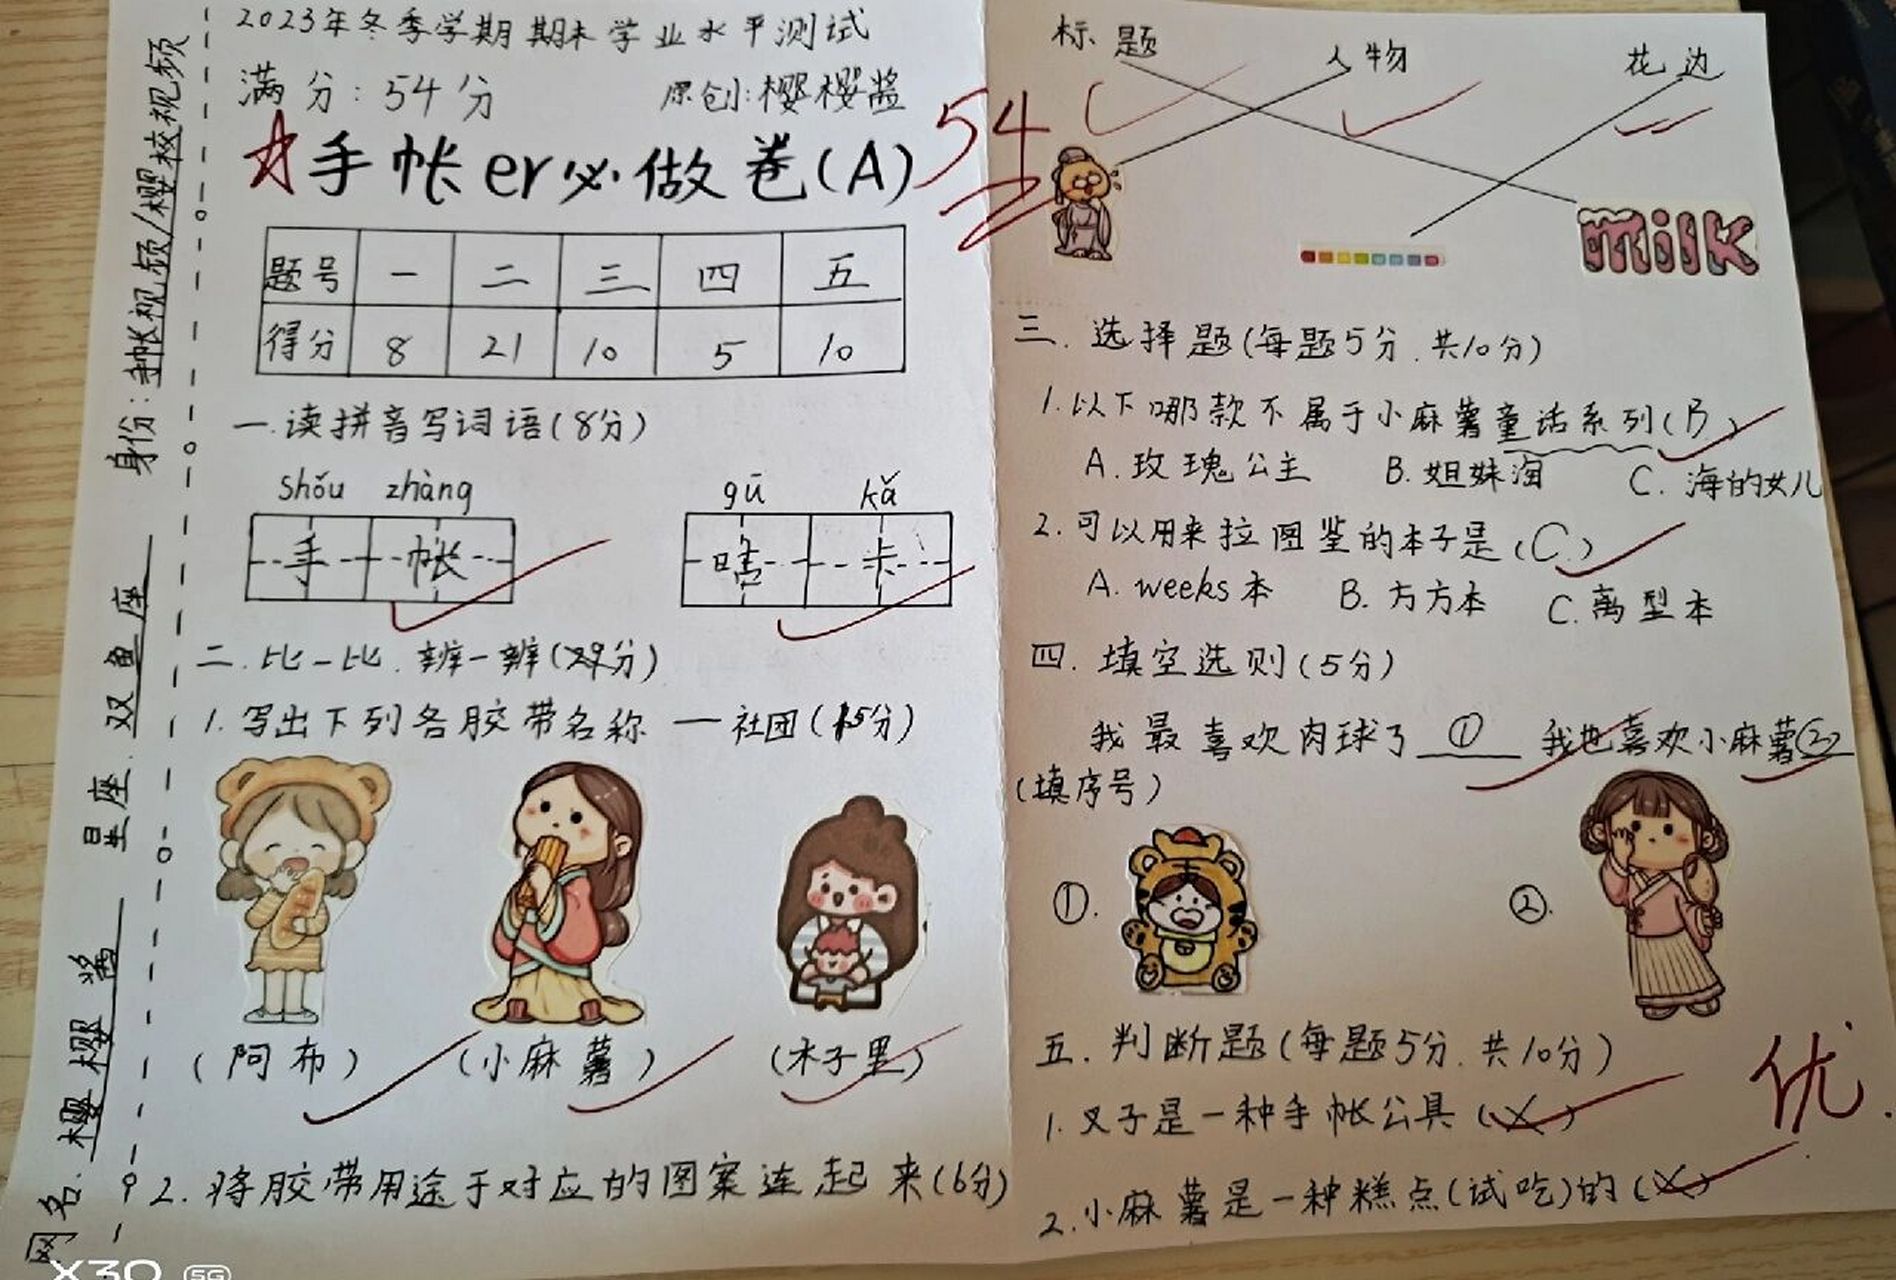 2023年冬季学期期末学业水平测试
满分:54分 原创:樱樱酱
手帐er必做卷(A)
54
题号 一 二 三 四 五
得分 8 21 10 5 10
一.读拼音写词语(8分)
shǒu zhàng gū kǎ
手帐 咕卡
二.比一比.辨一辨(21分)
1.写出下列各胶带名称 — 社团(15分)
(阿布) (小麻薯) (木子里)
2.将胶带用途于对应的图案连起来(6分)
网名.樱樱酱 星座.双鱼座 身份:手帐视频/樱校视频
标题 人物 花边
milk
三.选择题(每题5分.共10分)
1.以下哪款不属于小麻薯童话系列(B)
A.玫瑰公主 B.姐妹淘 C.海的女儿
2.可以用来拉图鉴的本子是(C)
A.weeks本 B.方方本 C.离型本
四.填空选则(5分)
我最喜欢肉球了 ① 我也喜欢小麻薯②
(填序号)
①. ②.
五.判断题(每题5分.共10分)
1.叉子是一种手帐公具(X)
2.小麻薯是一种糕点(试吃)的(X)
优
X30 5G